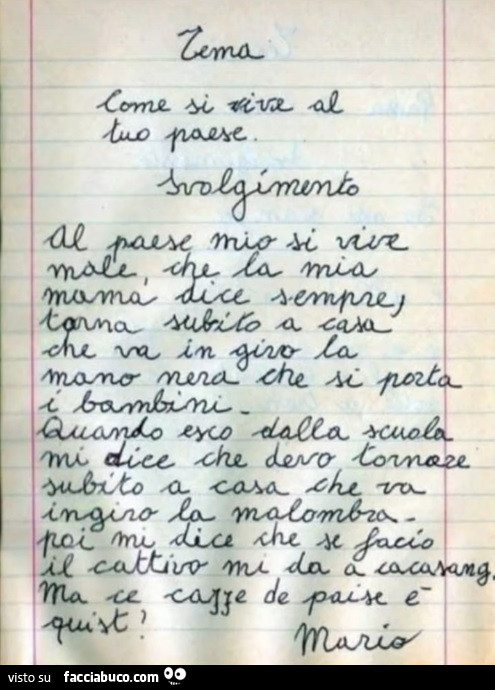 Tema
Come si vive al
tuo paese.
Svolgimento
Al paese mio si vive
male, che la mia
mamá dice sempre,
torna subito a casa
che va in giro la
mano nera che si porta
i bambini.
Quando esco dalla scuola
mi dice che devo tornare
subito a casa che va
ingiro la malombra.
poi mi dice che se facio
il cattivo mi da a cacasang.
Ma ce cazze de paise é
quist?
Mario
visto su facciabuco.com